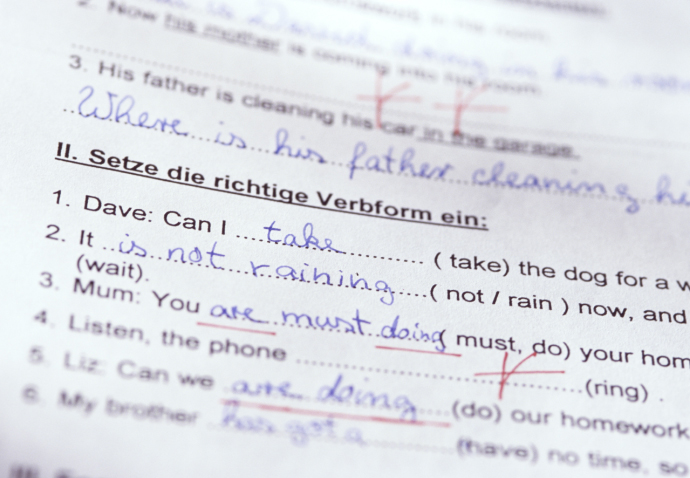 2. Now his mother is coming into his room.
3. His father is cleaning his car in the garage.
Where is his father cleaning
II. Setze die richtige Verbform ein:
1. Dave: Can I take ( take) the dog for a
2. It is not raining ( not / rain ) now, and
(wait).
3. Mum: You are must doing ( must, do) your
4. Listen, the phone (ring) .
5. Liz: Can we are doing (do) our homework
6. My brother has got a (have) no time, so